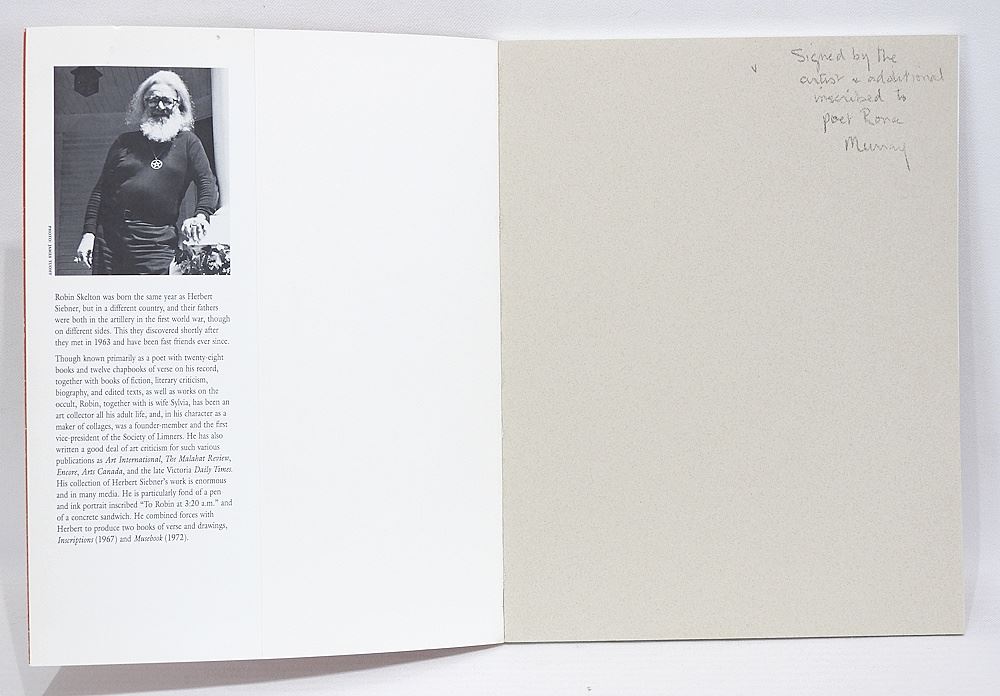 PHOTO: JAMES
Robin Skelton was born the same year as Herbert
Siebner, but in a different country, and their fathers
were both in the artillery in the first world war, though
on different sides. This they discovered shortly after
they met in 1963 and have been fast friends ever since.
Though known primarily as a poet with twenty-eight
books and twelve chapbooks of verse on his record,
together with books of fiction, literary criticism,
biography, and edited texts, as well as works on the
occult, Robin, together with is wife Sylvia, has been an
art collector all his adult life, and, in his character as a
maker of collages, was a founder-member and the first
vice-president of the Society of Limners. He has also
written a good deal of art criticism for such various
publications as Art International, The Malahat Review,
Encore, Arts Canada, and the late Victoria Daily Times.
His collection of Herbert Siebner's work is enormous
and in many media. He is particularly fond of a pen
and ink portrait inscribed "To Robin at 3:20 a.m." and
of a concrete sandwich. He combined forces with
Herbert to produce two books of verse and drawings,
Inscriptions (1967) and Musebook (1972).
Signed by the
artist & additional
inscribed to
poet Rona
Murray